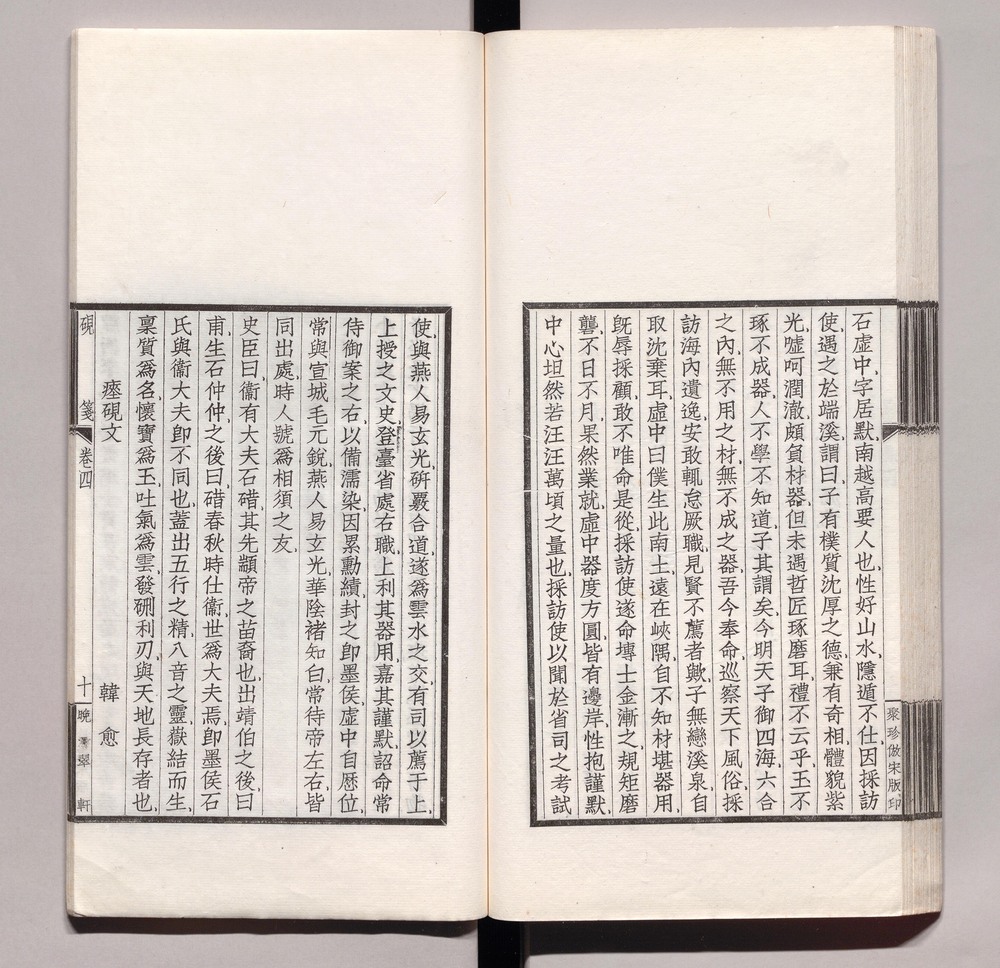 石虛中字居默南越高要人也性好山水隱遁不仕因採訪
使遇之於端溪謂曰子有樸質沈厚之德兼有奇相體貌紫
光噓呵潤澈頗負材器但未遇哲匠琢磨耳禮不云乎玉不
琢不成器人不學不知道子其謂矣今明天子御四海六合
之內無不用之材無不成之器吾今奉命巡察天下風俗採
訪海內遺逸安敢輒怠厥職見賢不薦者歟子無戀溪泉自
取沈棄耳虛中曰僕生此南土遠在峽隅自不知材堪器用
旣辱採顧敢不唯命是從採訪使遂命塼士金漸之規矩磨
礱不日不月果然業就虛中器度方圓皆有邊岸性抱謹默
中心坦然若汪汪萬頃之量也採訪使以聞於省司之考試
聚珍倣宋版印
使與燕人易玄光硏覈合道遂爲雲水之交有司以薦于上
上授之文史登臺省處右職上利其器用嘉其謹默詔命常
侍御案之右以備濡染因累勳績封之卽墨侯虛中自歷位
常與宣城毛元銳燕人易玄光華陰褚知白常待帝左右皆
同出處時人號爲相須之友
史臣曰衞有大夫石碏其先顓帝之苗裔也出靖伯之後曰
甫生石仲仲之後曰碏春秋時仕衞世爲大夫焉卽墨侯石
氏與衞大夫卽不同也蓋出五行之精八音之靈嶽結而生
稟質爲名懷寶爲玉吐氣爲雲發硎利刃與天地長存者也
瘞硯文 韓愈
硯箋 卷四 十 晩翠軒